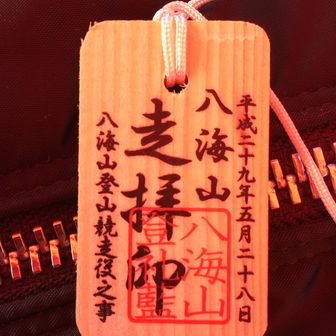 平成二十九年五月二十八日
八海山
走拝印
八海山登山競走役之事
八海山
登山